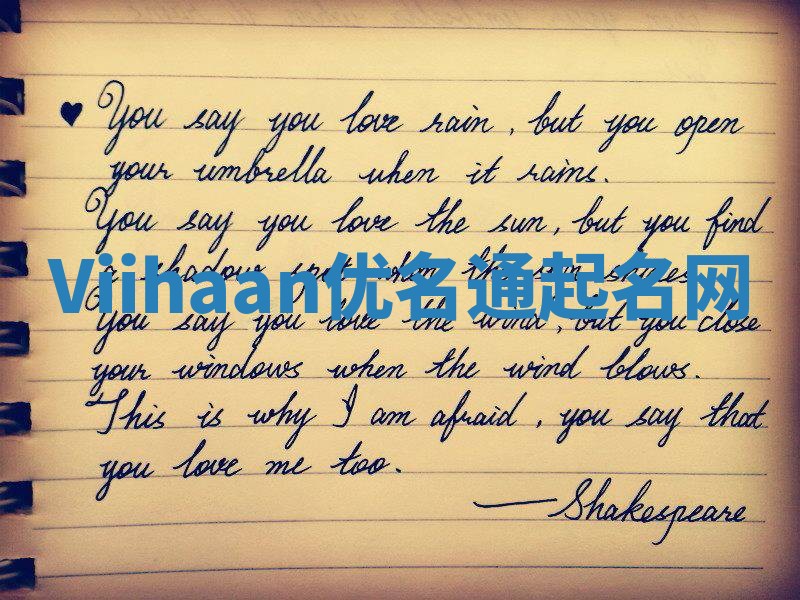 You say you love rain, but you open
your umbrella when it rains.
You say you love the sun, but you find
a shadow spot when the sun shines.
Viihaan优名通起名网
You say you love the wind, but you close
your windows when the wind blows.
This is why I am afraid, you say that
you love me too.
—Shakespeare